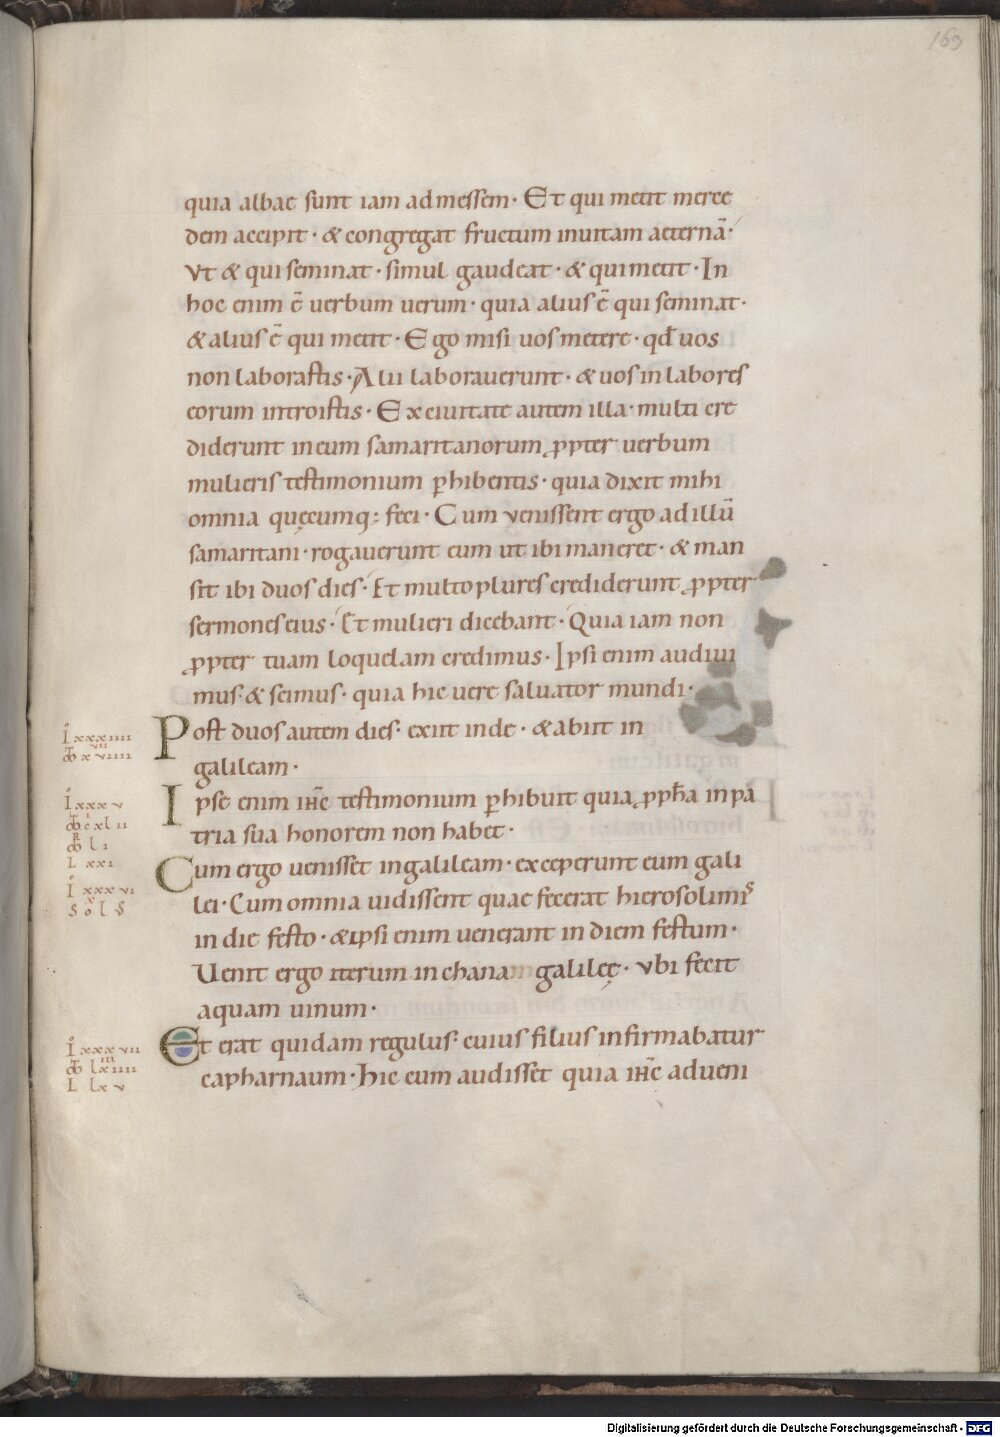 163
quia albae sunt iam admessem· Et qui metit merce
dem accipit· & congregat fructum inuitam aeternā·
Vt & qui seminat· simul gaudeat· & qui metit· In
hoc enim ē uerbum uerum· quia alius ē qui seminat·
& alius ē qui metit· Ego misi uos metere· qđ uos
non laborastis· Alii laborauerunt· & uos in labores
eorum introistis· Ex ciuitate autem illa· multi cre
diderunt in eum samaritanorum ꝓpter uerbum
mulieris testimonium ꝑhibentis· quia dixit mihi
omnia quęcumq; feci· Cum venissent ergo ad illū
samaritani· rogauerunt eum ut ibi maneret· & man
sit ibi duos dies· Et multo plures crediderunt ꝓpter
sermones eius· Et mulieri dicebant· Quia iam non
ꝓpter tuam loquelam credimus· Ipsi enim audiui
mus· & scimus· quia hic uere saluator mundi·
Post duos autem dies· exiit inde· & abiit in
galileam·
Ipse enim ihc̄ testimonium ꝑhibuit quia ꝓpħa in pa
tria sua honorem non habet·
Cum ergo uenisset ingalileam· exceperunt eum gali
lei· Cum omnia uidissent quae fecerat hierosolimis
in die festo· & ipsi enim uenerant in diem festum·
Uenit ergo iterum in chanam galileę· vbi fecit
aquam uinum·
Et erat quidam regulus· cuius filius infirmabatur
capharnaum· Hic cum audisset quia ihc̄ adueni
I xxxiiii
xviiii
I xxxv
cxlii
li
L xxi
I xxxvi
I xxxvii
lxiiii
L lxv
Digitalisierung gefördert durch die Deutsche Forschungsgemeinschaft - DFG